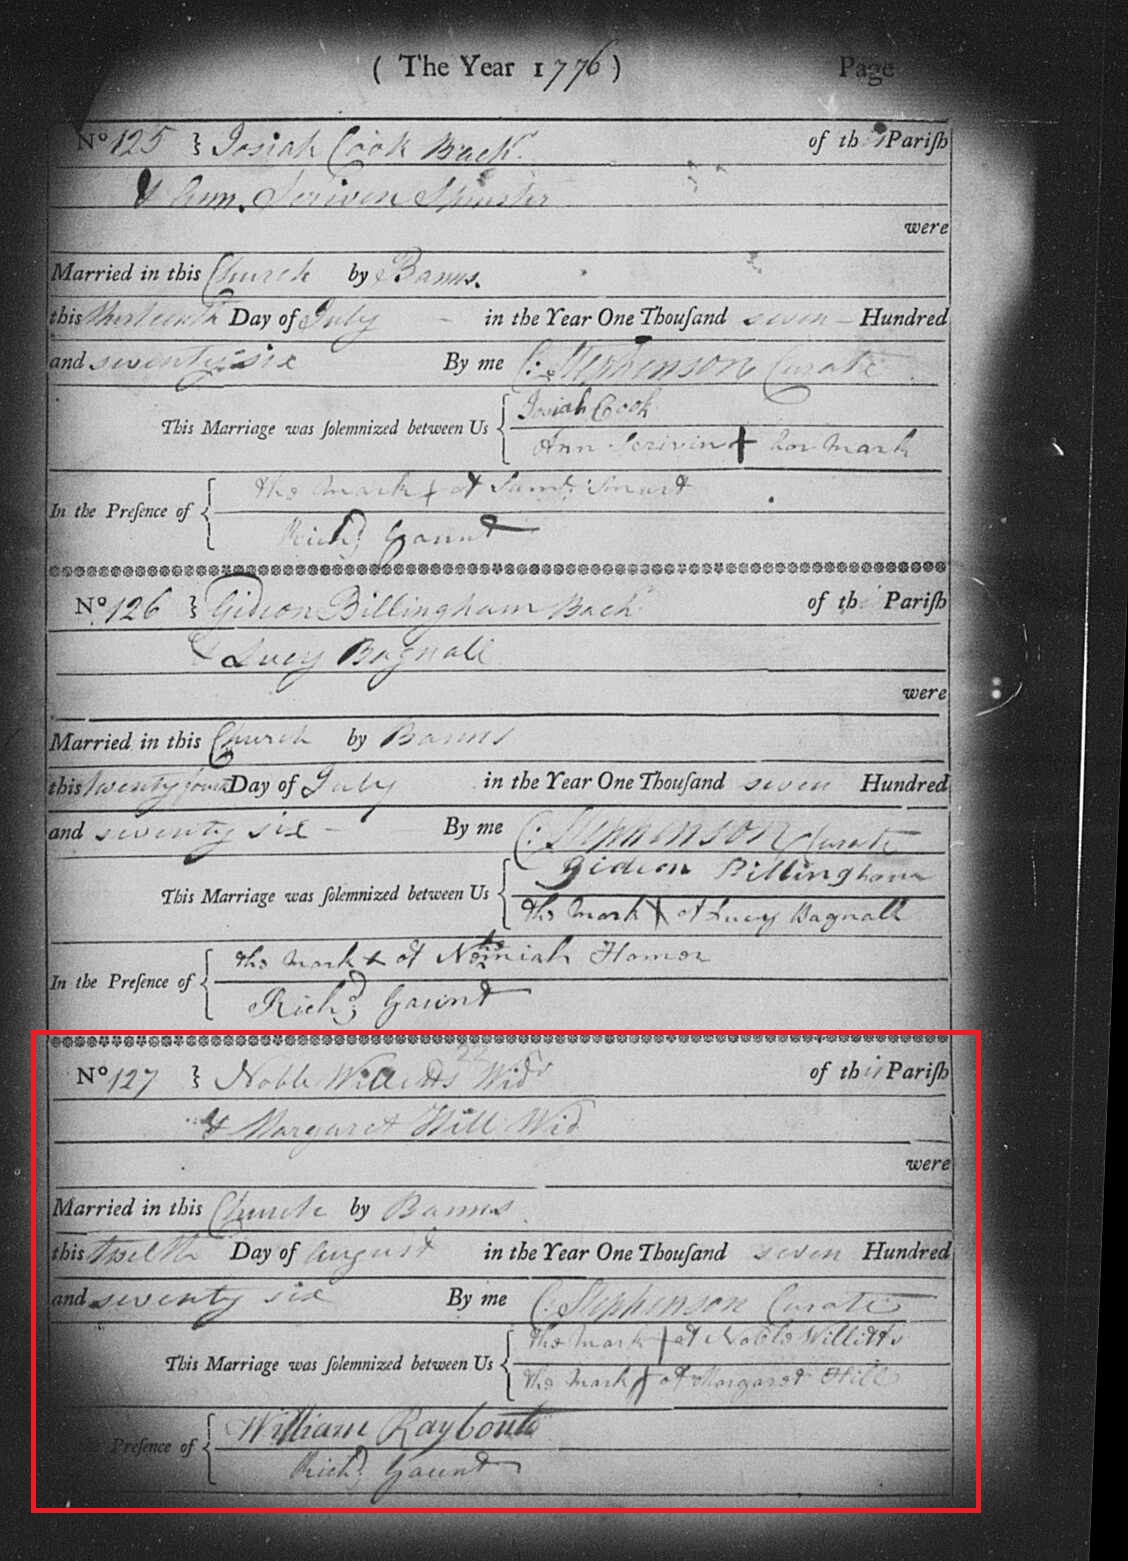 ( The Year 1776 ) Page
No 125 } Josiah Cook Bach. of this Parish
& Ann. Scriven Spinster
were
Married in this Church by Banns.
this thirteenth Day of July - in the Year One Thousand seven - Hundred
and seventy six By me C: Stephenson Curate
This Marriage was solemnized between Us { Josiah Cook
Ann Scrivin + her mark
In the Presence of { the mark + of Saml: Smart
Richd; Gaunt
No. 126 } Gideon Billingham Bach of this Parish
& Lucy Bagnall
were
Married in this Church by Banns
this twenty fourth Day of July in the Year One Thousand seven Hundred
and seventy six - By me C: Stephenson Curate
This Marriage was solemnized between Us { Gideon Billingham
the mark X of Lucy Bagnall
In the Presence of { the mark + of Homer
Richd; Gaunt
No 127 } Noble Willetts Widr of this Parish
& Margaret Hill Wid
were
Married in this Church by Banns
this twelth Day of August in the Year One Thousand seven Hundred
and seventy six By me C: Stephenson Curate
This Marriage was solemnized between Us { the mark + of Noble Willitts
the mark + of Margaret Hill
Presence of { William Raybould
Richd; Gaunt